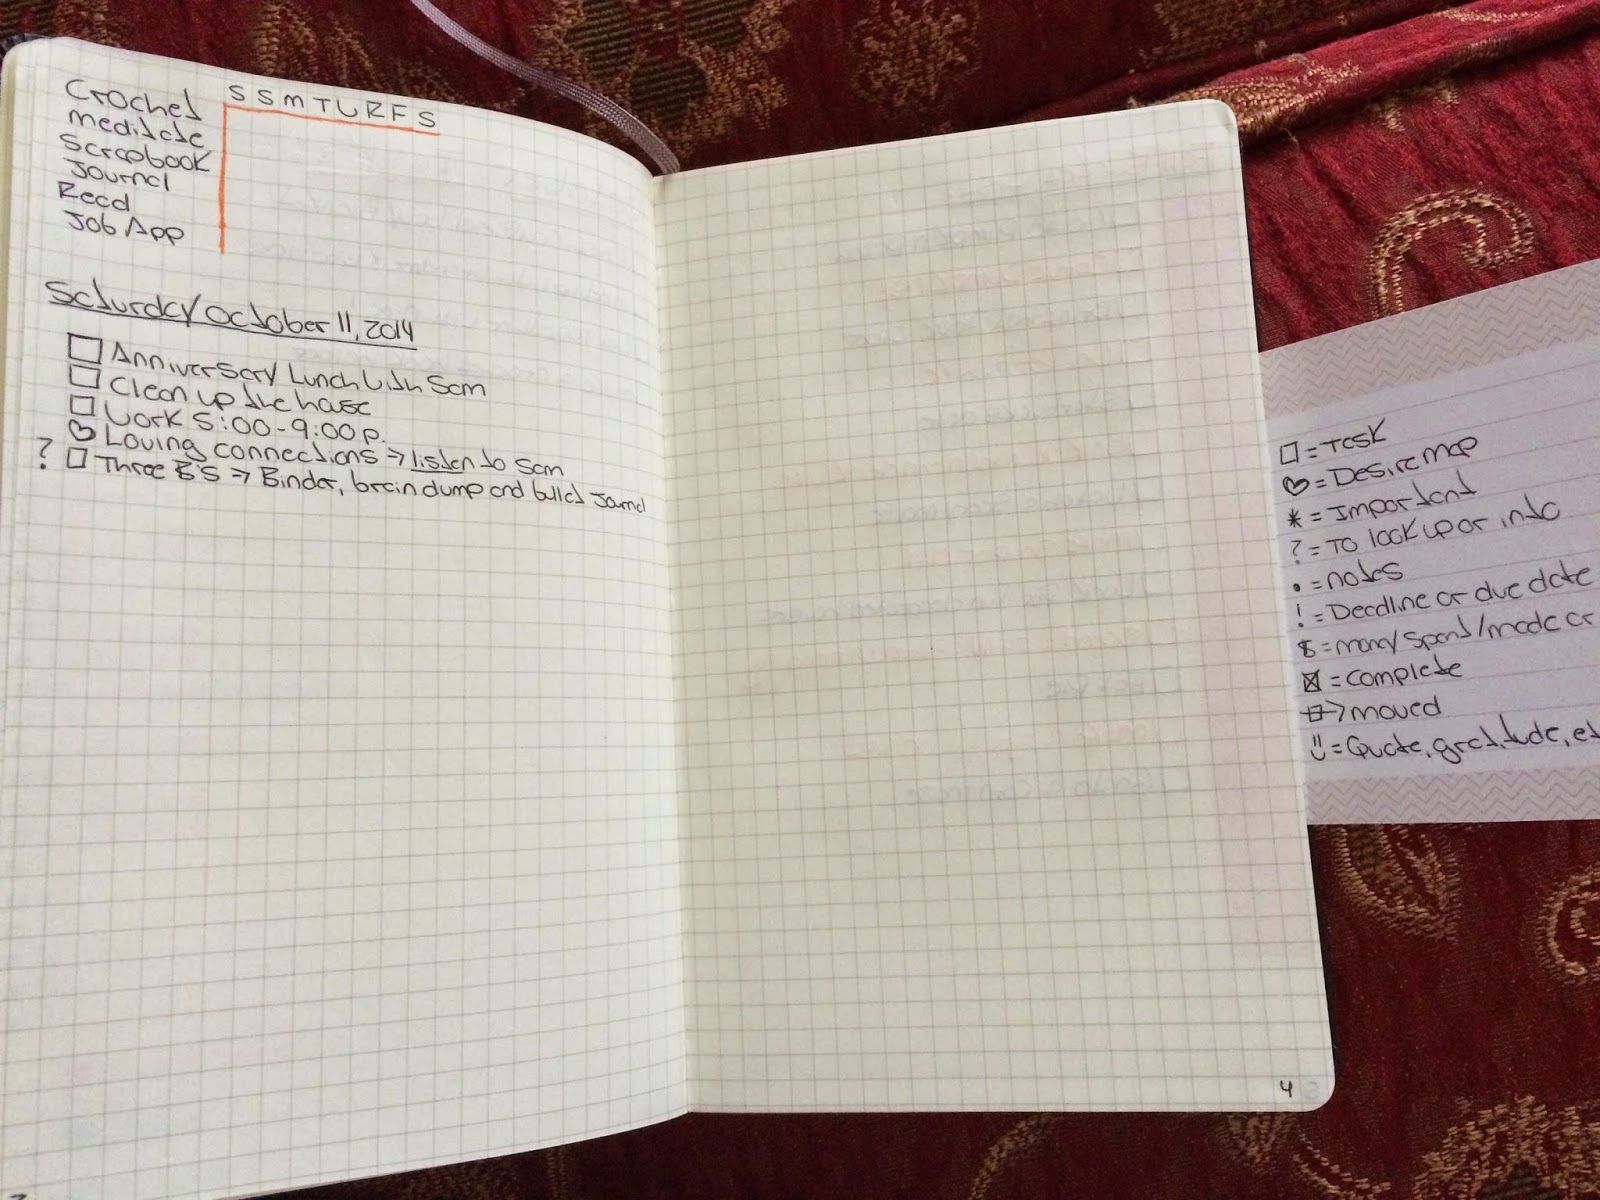 Crochet
meditate
Scrapbook
Journal
Read
Job App
S S M T U R F S
Saturday October 11, 2014
Anniversary Lunch with Sam
Clean up the house
Work 5:00-9:00 p.
Loving connections → listen to Sam
? Three B's → Binder, brain dump and bullet Journal
4
□ = Task
♡ = Desire map
* = Important
? = To look up or info
• = notes
! = Deadline or due date
$ = money spent/made or
☒ = complete
→ moved
= Quote, gratitude, et